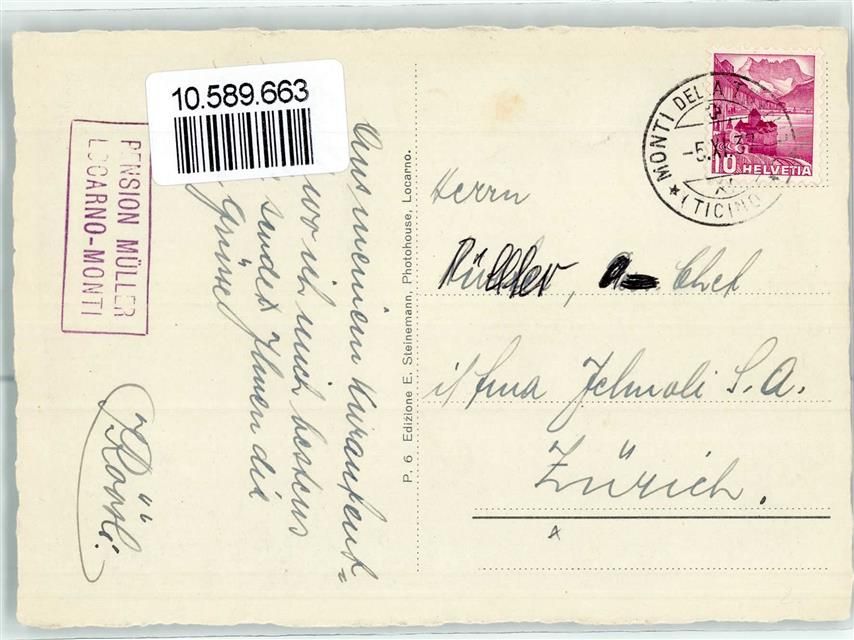 10.589.663
PENSION MÜLLER
LOCARNO-MONTI
Aus meinem Kuraufent=
wo ich mich bestens
sendet Ihnen die
Grüsse
Rösli.
P. 6 Edizione E. Steinemann, Photohouse, Locarno.
MONTI DELLA T
-5.XI.37
★ (TICINO
10 HELVETIA
Herrn
Chef
i/ Fma Jelmoli S.A.
Zürich.